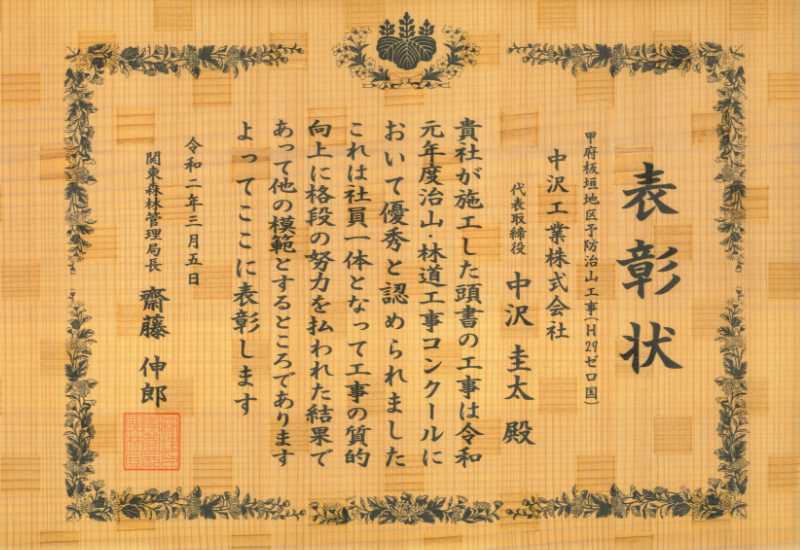 表彰状
甲府板垣地区予防治山工事(H29ゼロ国)
中沢工業株式会社
代表取締役 中沢 圭太 殿
貴社が施工した頭書の工事は令和
元年度治山・林道工事コンクールに
おいて優秀と認められました
これは社員一体となって工事の質的
向上に格段の努力を払われた結果で
あって他の模範とするところであります
よってここに表彰します
令和二年三月五日
関東森林管理局長 齋藤 伸郎